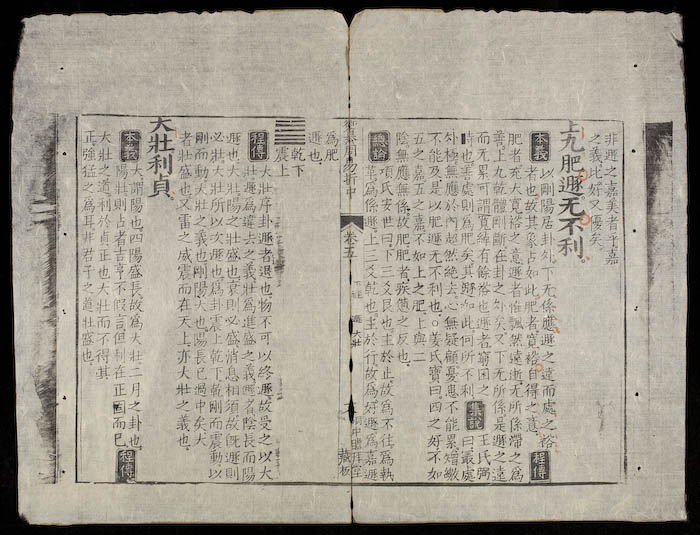 非遯之嘉美者乎嘉
之義比好又優矣
上九肥遯无不利。
本義
以剛陽居卦外下无係應遯之遠而處之裕
者也故其象占如此肥者寬裕自得之意
程傳
肥者充大寬裕之意遯者惟飄然遠逝无所係滯之為
善上九乾體剛斷在卦之外矣又下无所係是遯之遠
而无累可謂寬綽有餘裕也遯者窮困之
時也善處則為肥矣其遯如此何所不利
集說
王氏弼
曰最處
外極無應於內超然絕去心無疑顧憂患不能累矰繳
不能及是以肥遯无不利也○姜氏寶曰四之好不如
五之嘉五之嘉不如上之肥上與二
陰無應無係故肥肥者疾憊之反也
總論
項氏安世曰下三爻艮也主於止故為不往為執
革為係遯上三爻乾也主於行故為好遯為嘉遯
卷五
下經 遯 大壯
藏板
為肥
遯也
乾下
震上
程傳
大壯序卦遯者退也物不可以終遯故受之以大
壯遯為違去之義壯為進盛之義遯者陰長而陽
遯也大壯陽之壯盛也衰則必盛消息相須故既遯則
必壯大壯所以次遯也為卦震上乾下乾剛而震動以
剛而動大壯之義也剛陽大也陽長已過中矣大
者壯盛也又雷之威震而在天上亦大壯之義也
大壯利貞。
本義
大謂陽也四陽盛長故為大壯二月之卦也
陽壯則占者吉亨不假言但利在正固而已
程傳
大壯之道利於貞正也大壯而不得其
正強猛之為耳非君子之道壯盛也